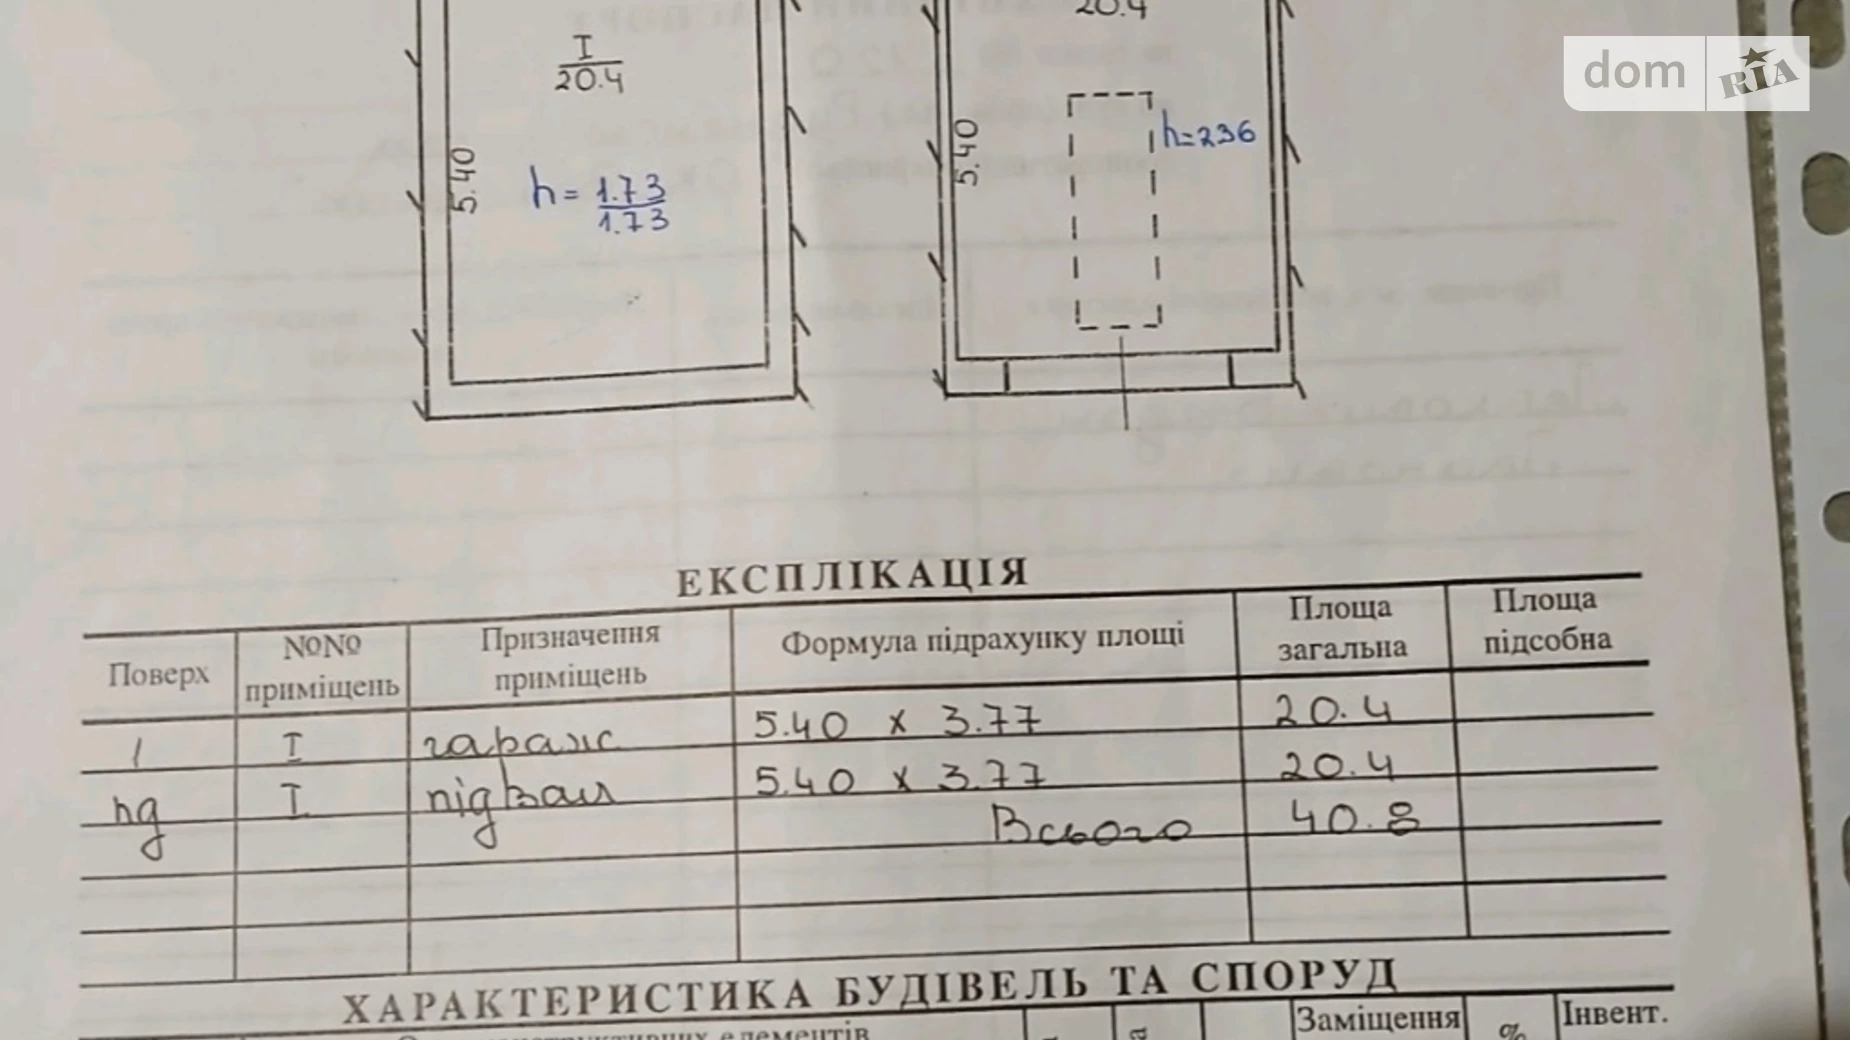 20.4
dom RIA
I
20.4
5.40
h = 1.73
1.73
5.40
h=236
ЕКСПЛІКАЦІЯ
Поверх
№№ приміщень
Призначення приміщень
Формула підрахунку площі
Площа загальна
Площа підсобна
1 I гараж 5.40 x 3.77 20.4
пд I підвал 5.40 x 3.77 20.4
Всього 40.8
ХАРАКТЕРИСТИКА БУДІВЕЛЬ ТА СПОРУД
елементів
Заміщення
%
Інвент.